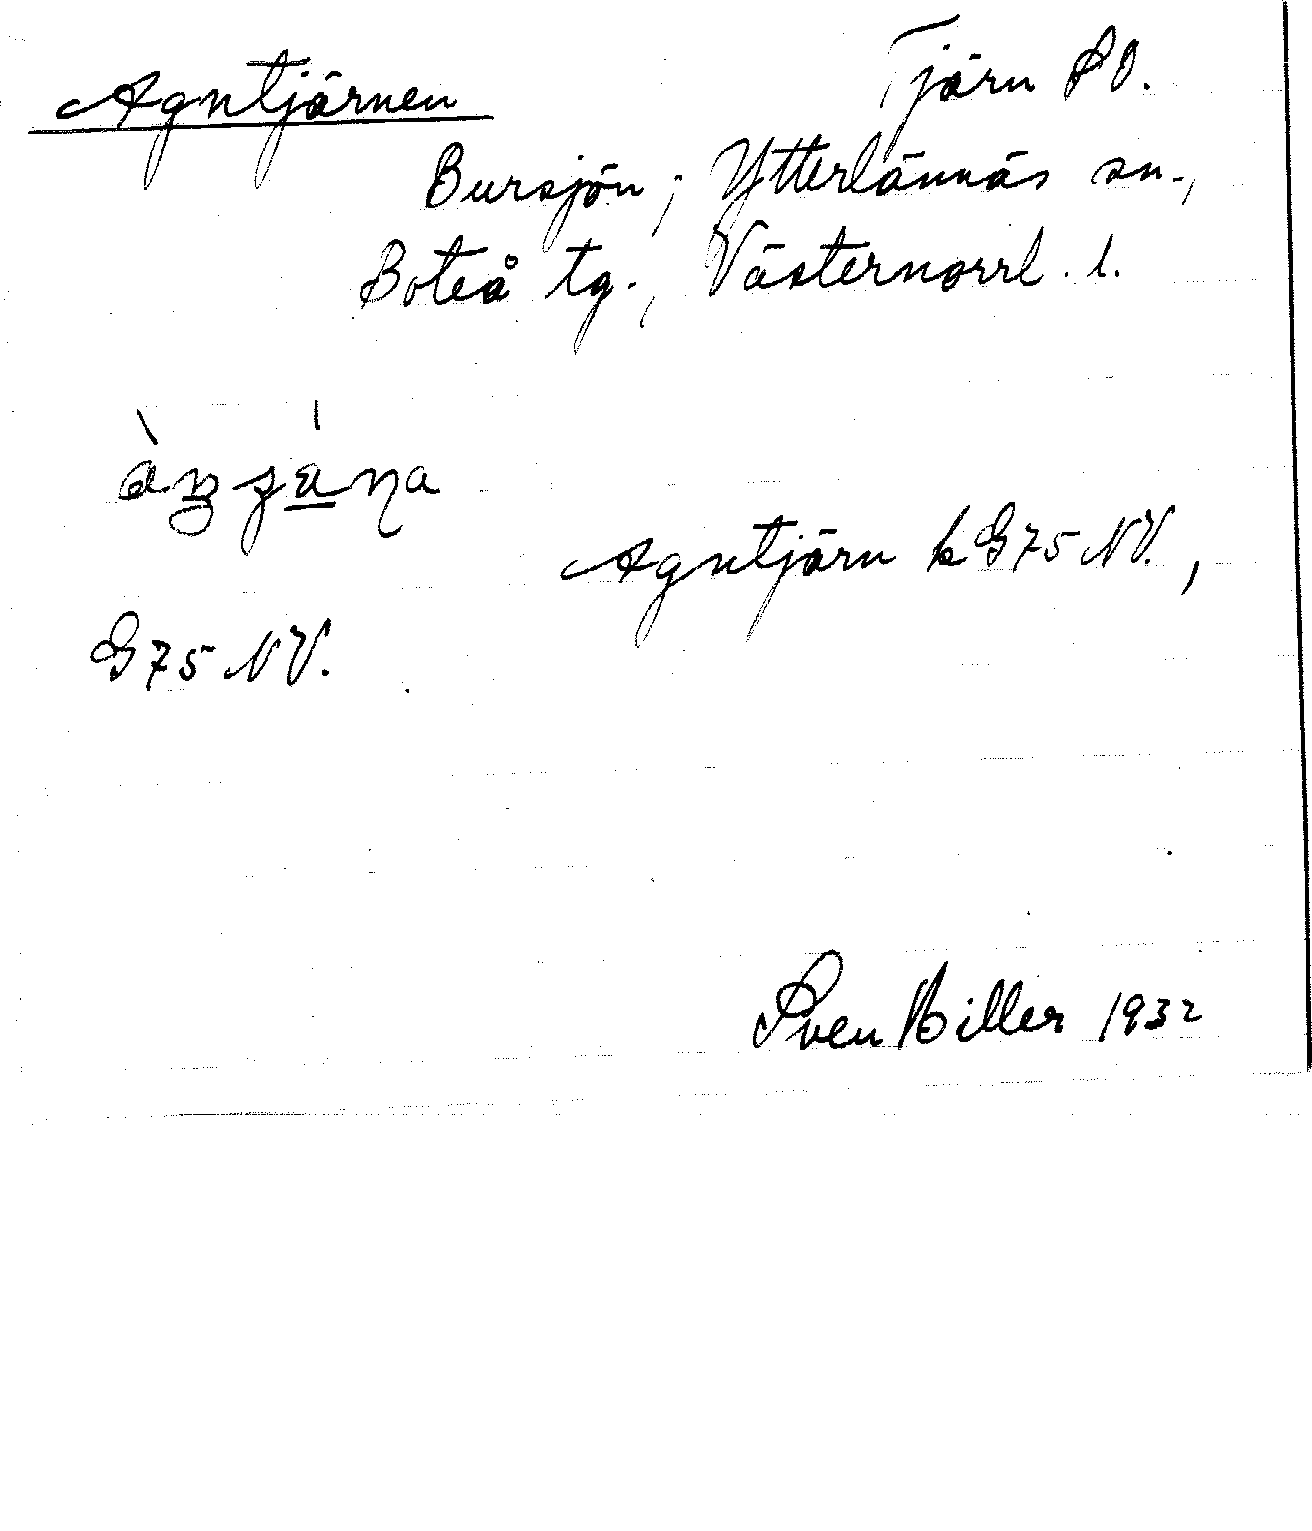 Agntjärnen
Tjärn SO.
Bursjön; Ytterlännäs sn.,
Boteå tg., Västernorrl. l.
Agntjärn k G75 NV.,
G75 NV.
Sven Hiller 1932